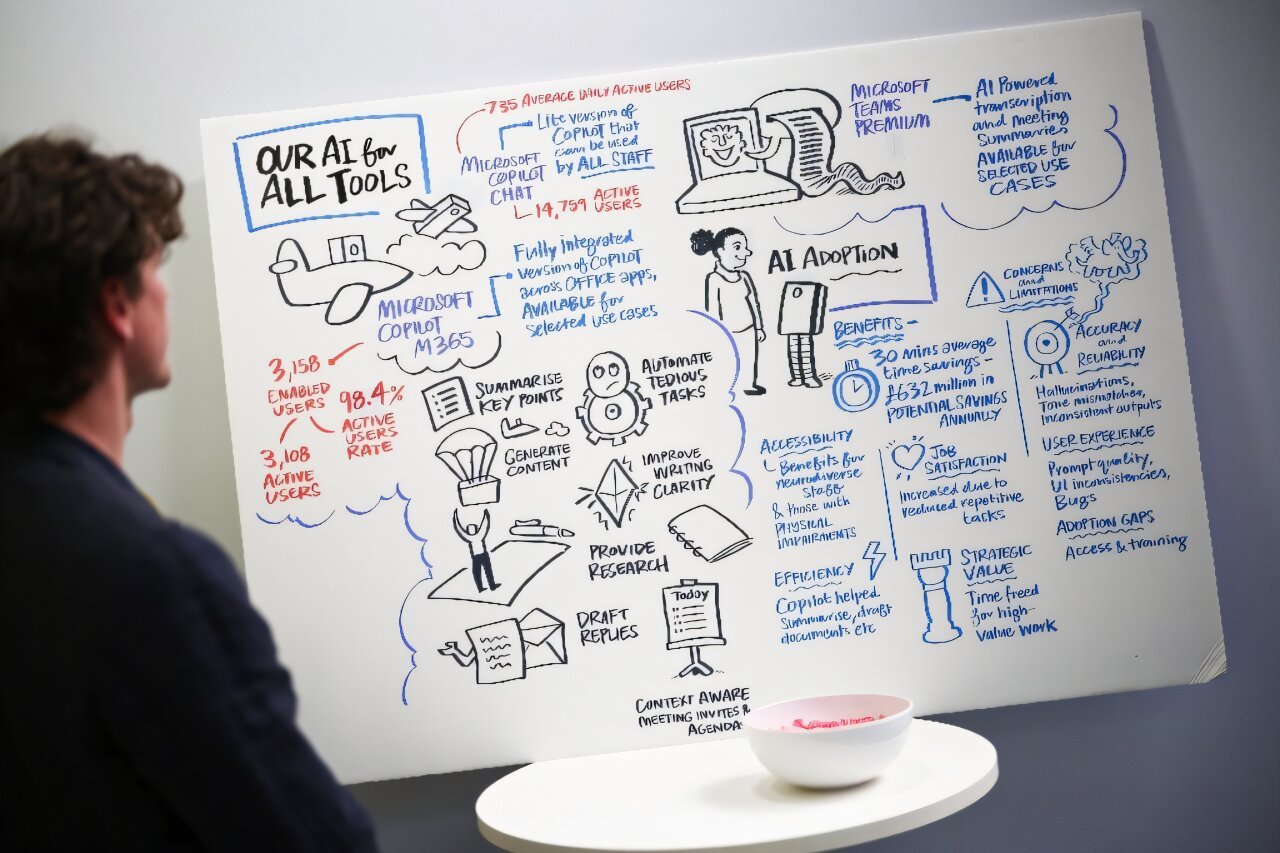 OUR AI for
ALL TOOLS
735 AVERAGE DAILY ACTIVE USERS
Lite version of
COPILOT that
can be used
by ALL STAFF
MICROSOFT
COPILOT
CHAT
14,759 ACTIVE
USERS
Fully integrated
version of COPILOT
across OFFICE apps,
AVAILABLE for
selected use cases
MICROSOFT
COPILOT
M365
3,158
ENABLED
USERS
98.4%
ACTIVE
USERS
RATE
3,108
ACTIVE
USERS
SUMMARISE
KEY POINTS
AUTOMATE
TEDIOUS
TASKS
GENERATE
CONTENT
IMPROVE
WRITING
CLARITY
PROVIDE
RESEARCH
DRAFT
REPLIES
Today
CONTEXT AWARE
MEETING INVITES &
AGENDA
MICROSOFT
TEAMS
PREMIUM
AI Powered
transcription
and meeting
Summaries
AVAILABLE for
SELECTED USE
CASES
AI ADOPTION
BENEFITS -
30 mins average
time savings -
£632 million in
POTENTIAL SAVINGS
ANNUALLY
ACCESSIBILITY
Benefits for
neurodiverse
staff
& those with
PHYSICAL
IMPAIRMENTS
JOB
SATISFACTION
Increased due to
reduced repetitive
tasks
EFFICIENCY
Copilot helped
summarise, draft
documents etc
STRATEGIC
VALUE
Time freed
for high-
value work
CONCERNS
and
LIMITATIONS
ACCURACY
and
RELIABILITY
Hallucinations,
Tone mismatches,
inconsistent outputs
USER EXPERIENCE
Prompt quality,
UI inconsistencies,
Bugs
ADOPTION GAPS
Access & training